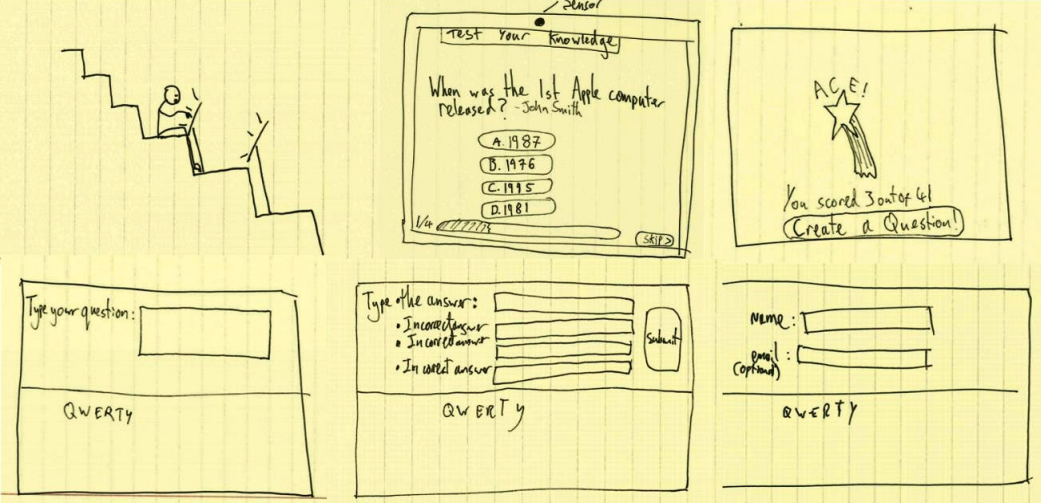 Sensor
Test Your Knowledge
When was the 1st Apple computer
released? -John Smith
A. 1987
B. 1976
C. 1995
D. 1981
1/4
Skip>
ACE!
You scored 3 out of 4!
Create a Question!
Type your question:
QWERTY
Type the answer:
• Incorrect answer
• Incorrect answer
• Incorrect answer
Submit
QWERTY
Name:
email:
(optional)
QWERTY